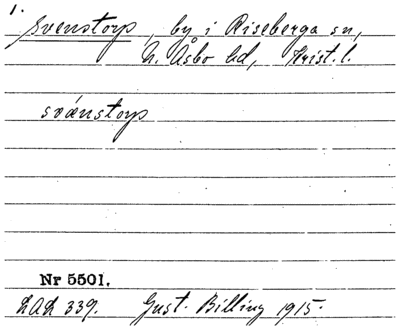 1.
Svenstorp, by i Riseberga sn,
N. Åsbo hd, Krist. l.
svænstorp
Nr 5501.
LAL 339. Gust. Billing 1915.